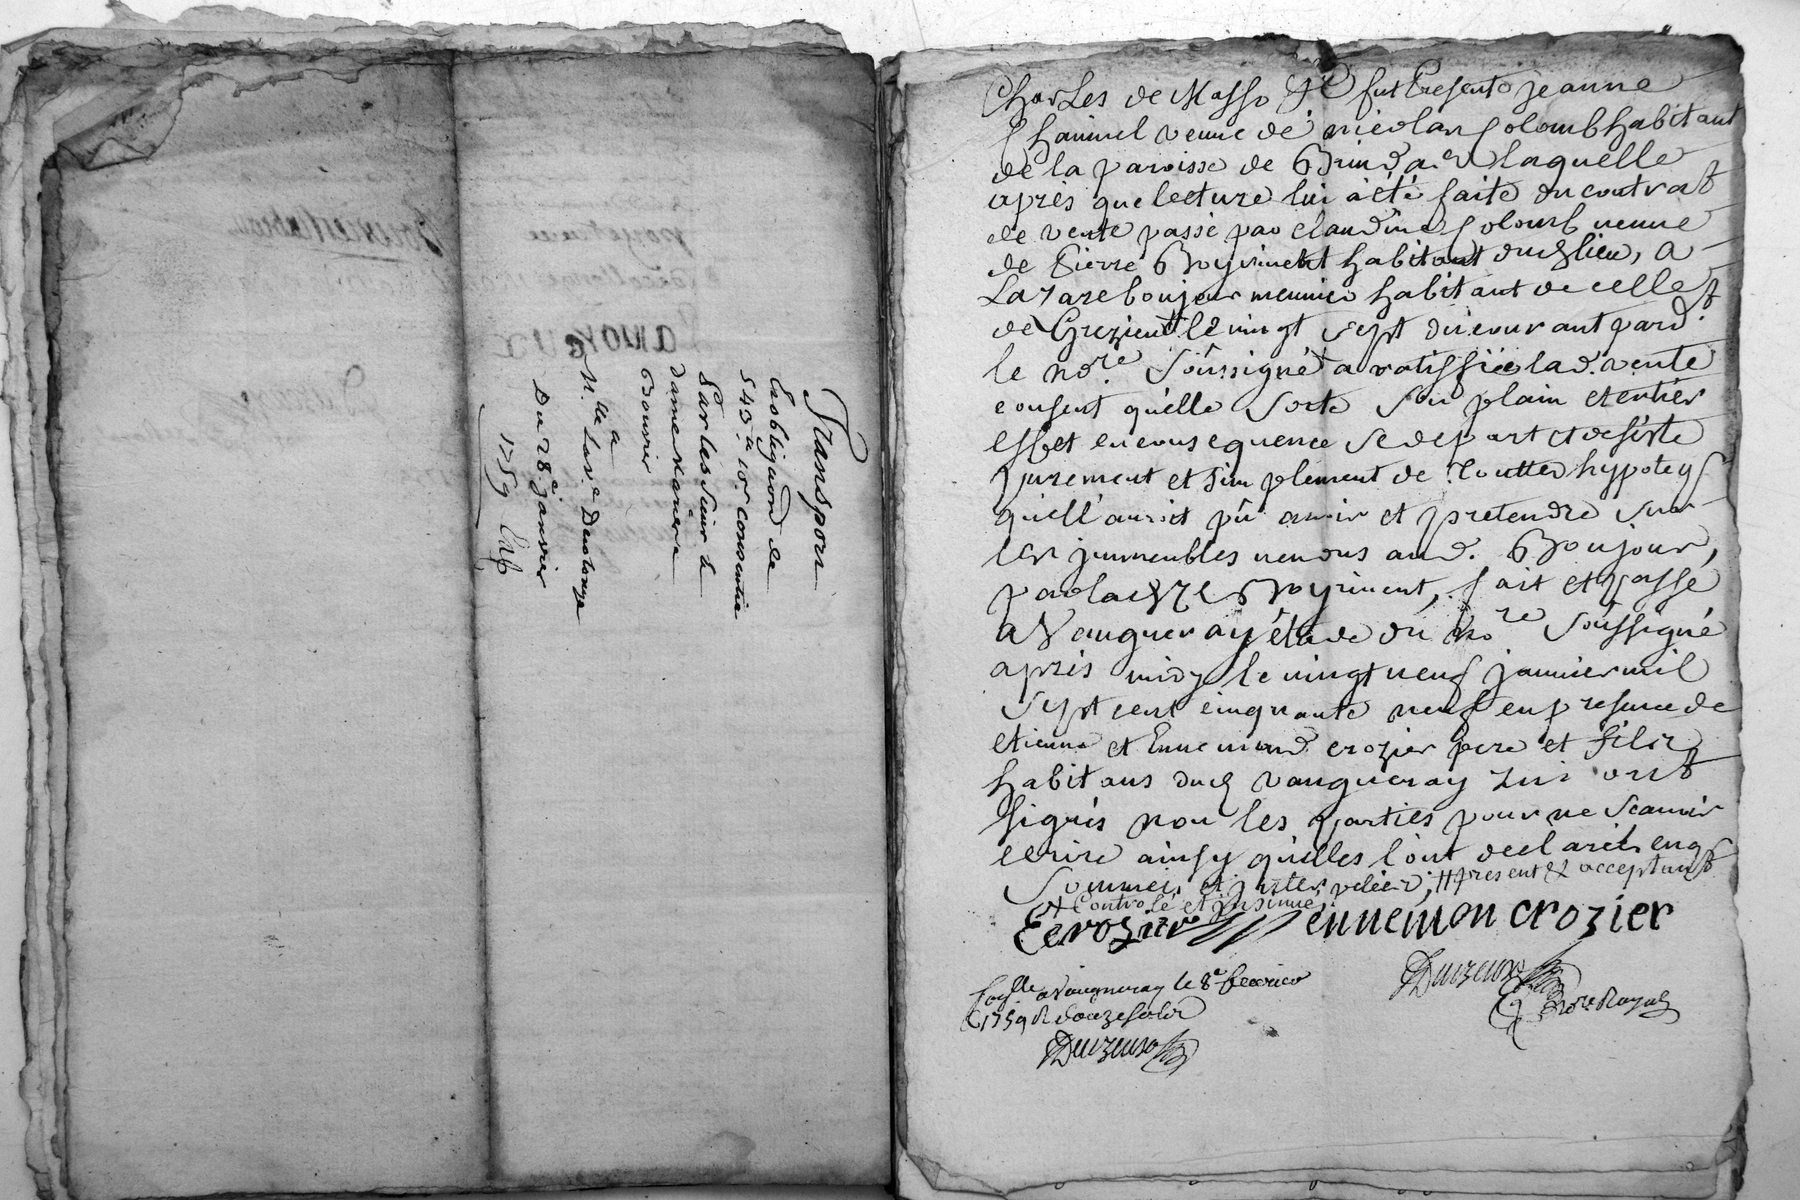 Transport
En obligation de
543ᵗᵗ 10ˢ consentie
Par les sieur &
dame
Bouvier
a
Mˡˡᵉ
Du 28ᵉ janvier
1759
Charles de Masso fut Presente jeanne
veuve de nicolas Colomb habitant
de la paroisse de Brindas laquelle
après que lecture lui a été faite du contrat
de vente passé par claudine Colomb veuve
de Pierre Boyriment habitant dud lieu, a
Lazare boujour meunier habitant de celle
de Grezieu le vingt sept du courant pard.
le noʳᵉ soussigné a ratiffiée lad. vente
consent qu'elle sorte son plain et entier
effet en consequence se depart et desiste
purement et simplement de touttes hypoteqs
qu'ell'auroit pû avoir et pretendre sur
les jmmeubles vendus aud. Boujour,
par lad Boyriment, fait et passé
a Vaugneray étude du noʳᵉ soussigné
après midy le vingt neuf janvier mil
sept cent cinquante neuf en presence de
etienne et Ennemond crozier pere et fils
habitans dud vaugneray qui ont
signés non les parties pour ne scavoir
ecrire ainsy qu'elles l'ont declaré enqs
sommés et present & acceptant
Controlé et jnsinué
E crozier ennemon crozier
a Vaugneray le 8ᵉ fevrier
1759 R douze sols
noʳᵉ Royal